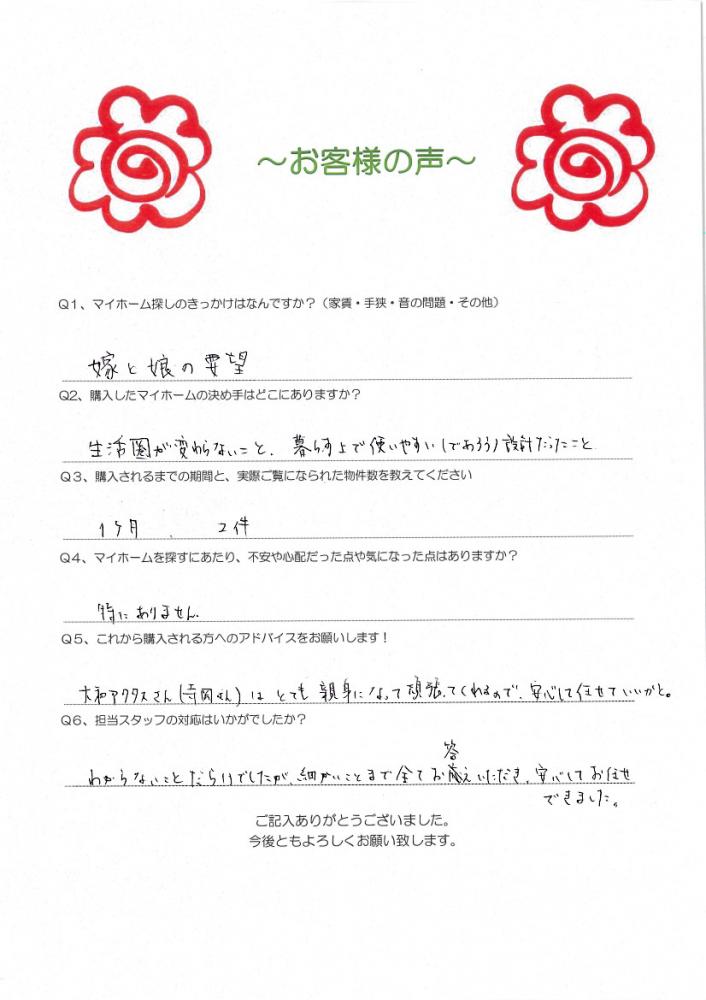 ～お客様の声～
Q1、マイホーム探しのきっかけはなんですか？（家賃・手狭・音の問題・その他）
嫁と娘の要望
Q2、購入したマイホームの決め手はどこにありますか？
生活圏が変わらないこと、暮らす上で使いやすい（であろう）設計だったこと
Q3、購入されるまでの期間と、実際ご覧になられた物件数を教えてください
1ケ月、2件
Q4、マイホームを探すにあたり、不安や心配だった点や気になった点はありますか？
特にありません。
Q5、これから購入される方へのアドバイスをお願いします！
大和アクタスさん（寺岡さん）はとても親身になって頑張ってくれるので、安心して任せていいかと。
Q6、担当スタッフの対応はいかがでしたか？
わからないことだらけでしたが、細かいことまで全てお答えいただき、安心してお任せ
できました。
ご記入ありがとうございました。
今後ともよろしくお願い致します。